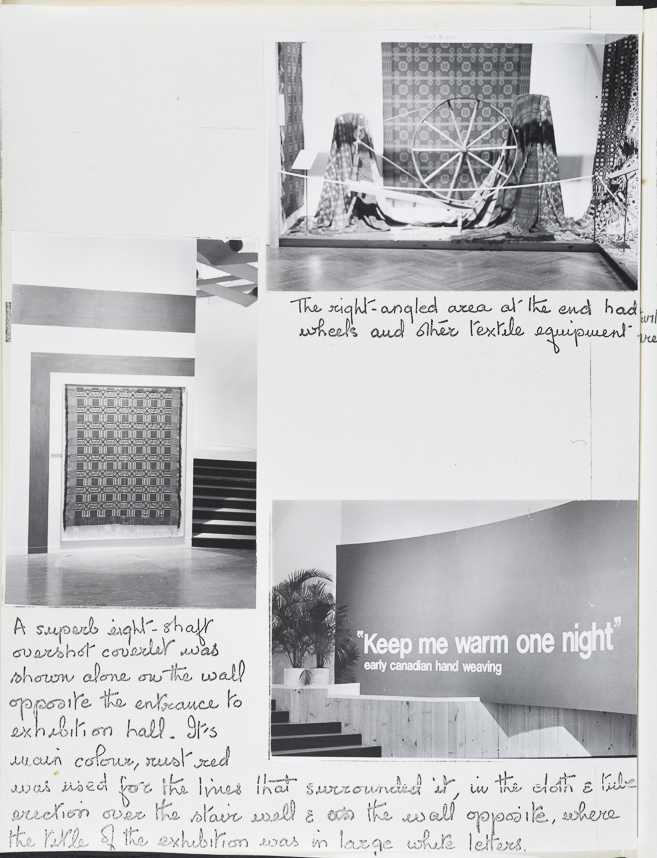 The right-angled area at the end had
wheels and other textile equipment
"Keep me warm one night"
early canadian hand weaving
A superb eight-shaft
overshot coverlet was
shown alone on the wall
opposite the entrance to
exhibition hall. It's
main colour, rust red
was used for the lines that surrounded it, in the cloth & tube
erection over the stair well & on the wall opposite, where
the title of the exhibition was in large white letters.